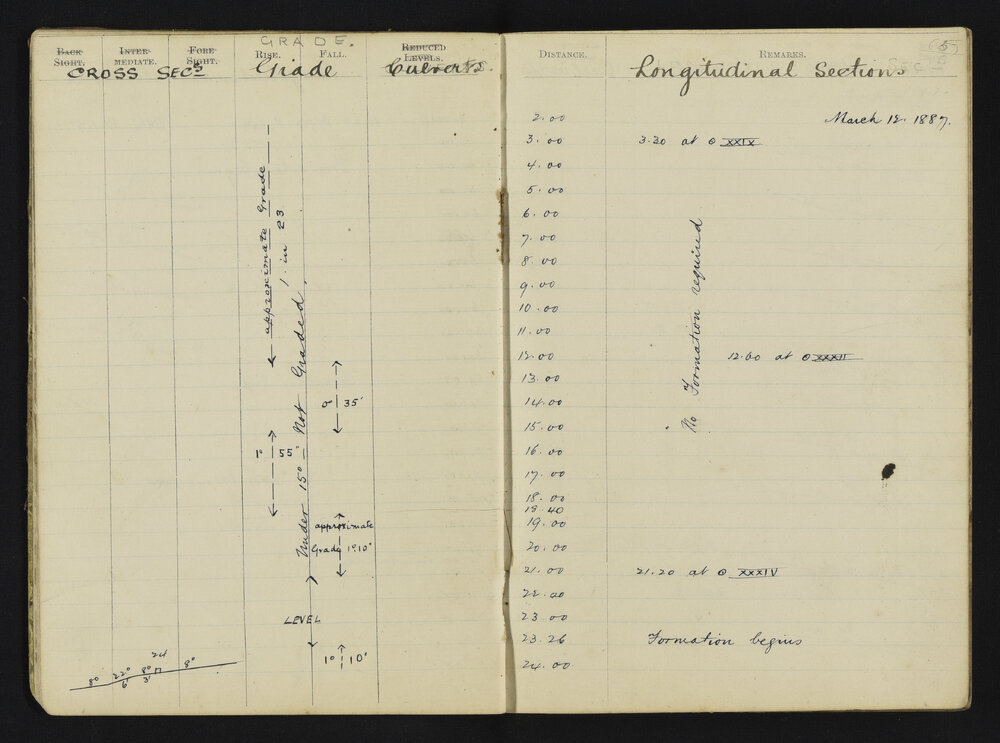 GRADE.
BACK SIGHT. INTERMEDIATE. FORE SIGHT. RISE. FALL. REDUCED LEVELS.
CROSS SECS Grade Culverts.
approximate Grade
1 in 23
Under 15° = Not Graded.
0° 35'
1° 55'
approximate
Grade 1°.10'
LEVEL
1° 10'
24
8° 22° 8° 17 8°
6' 3'
(5)
DISTANCE. REMARKS.
Longitudinal Sections
2.00 March 12. 1887.
3.00 3.20 at ⊙ XXIX
4.00
5.00
6.00
7.00
8.00
9.00
10.00
11.00
12.00 12.60 at ⊙ XXXII
13.00
14.00
15.00
No Formation required
16.00
17.00
18.00
18.40
19.00
20.00
21.00 21.20 at ⊙ XXXIV
22.00
23.00
23.26 Formation begins
24.00